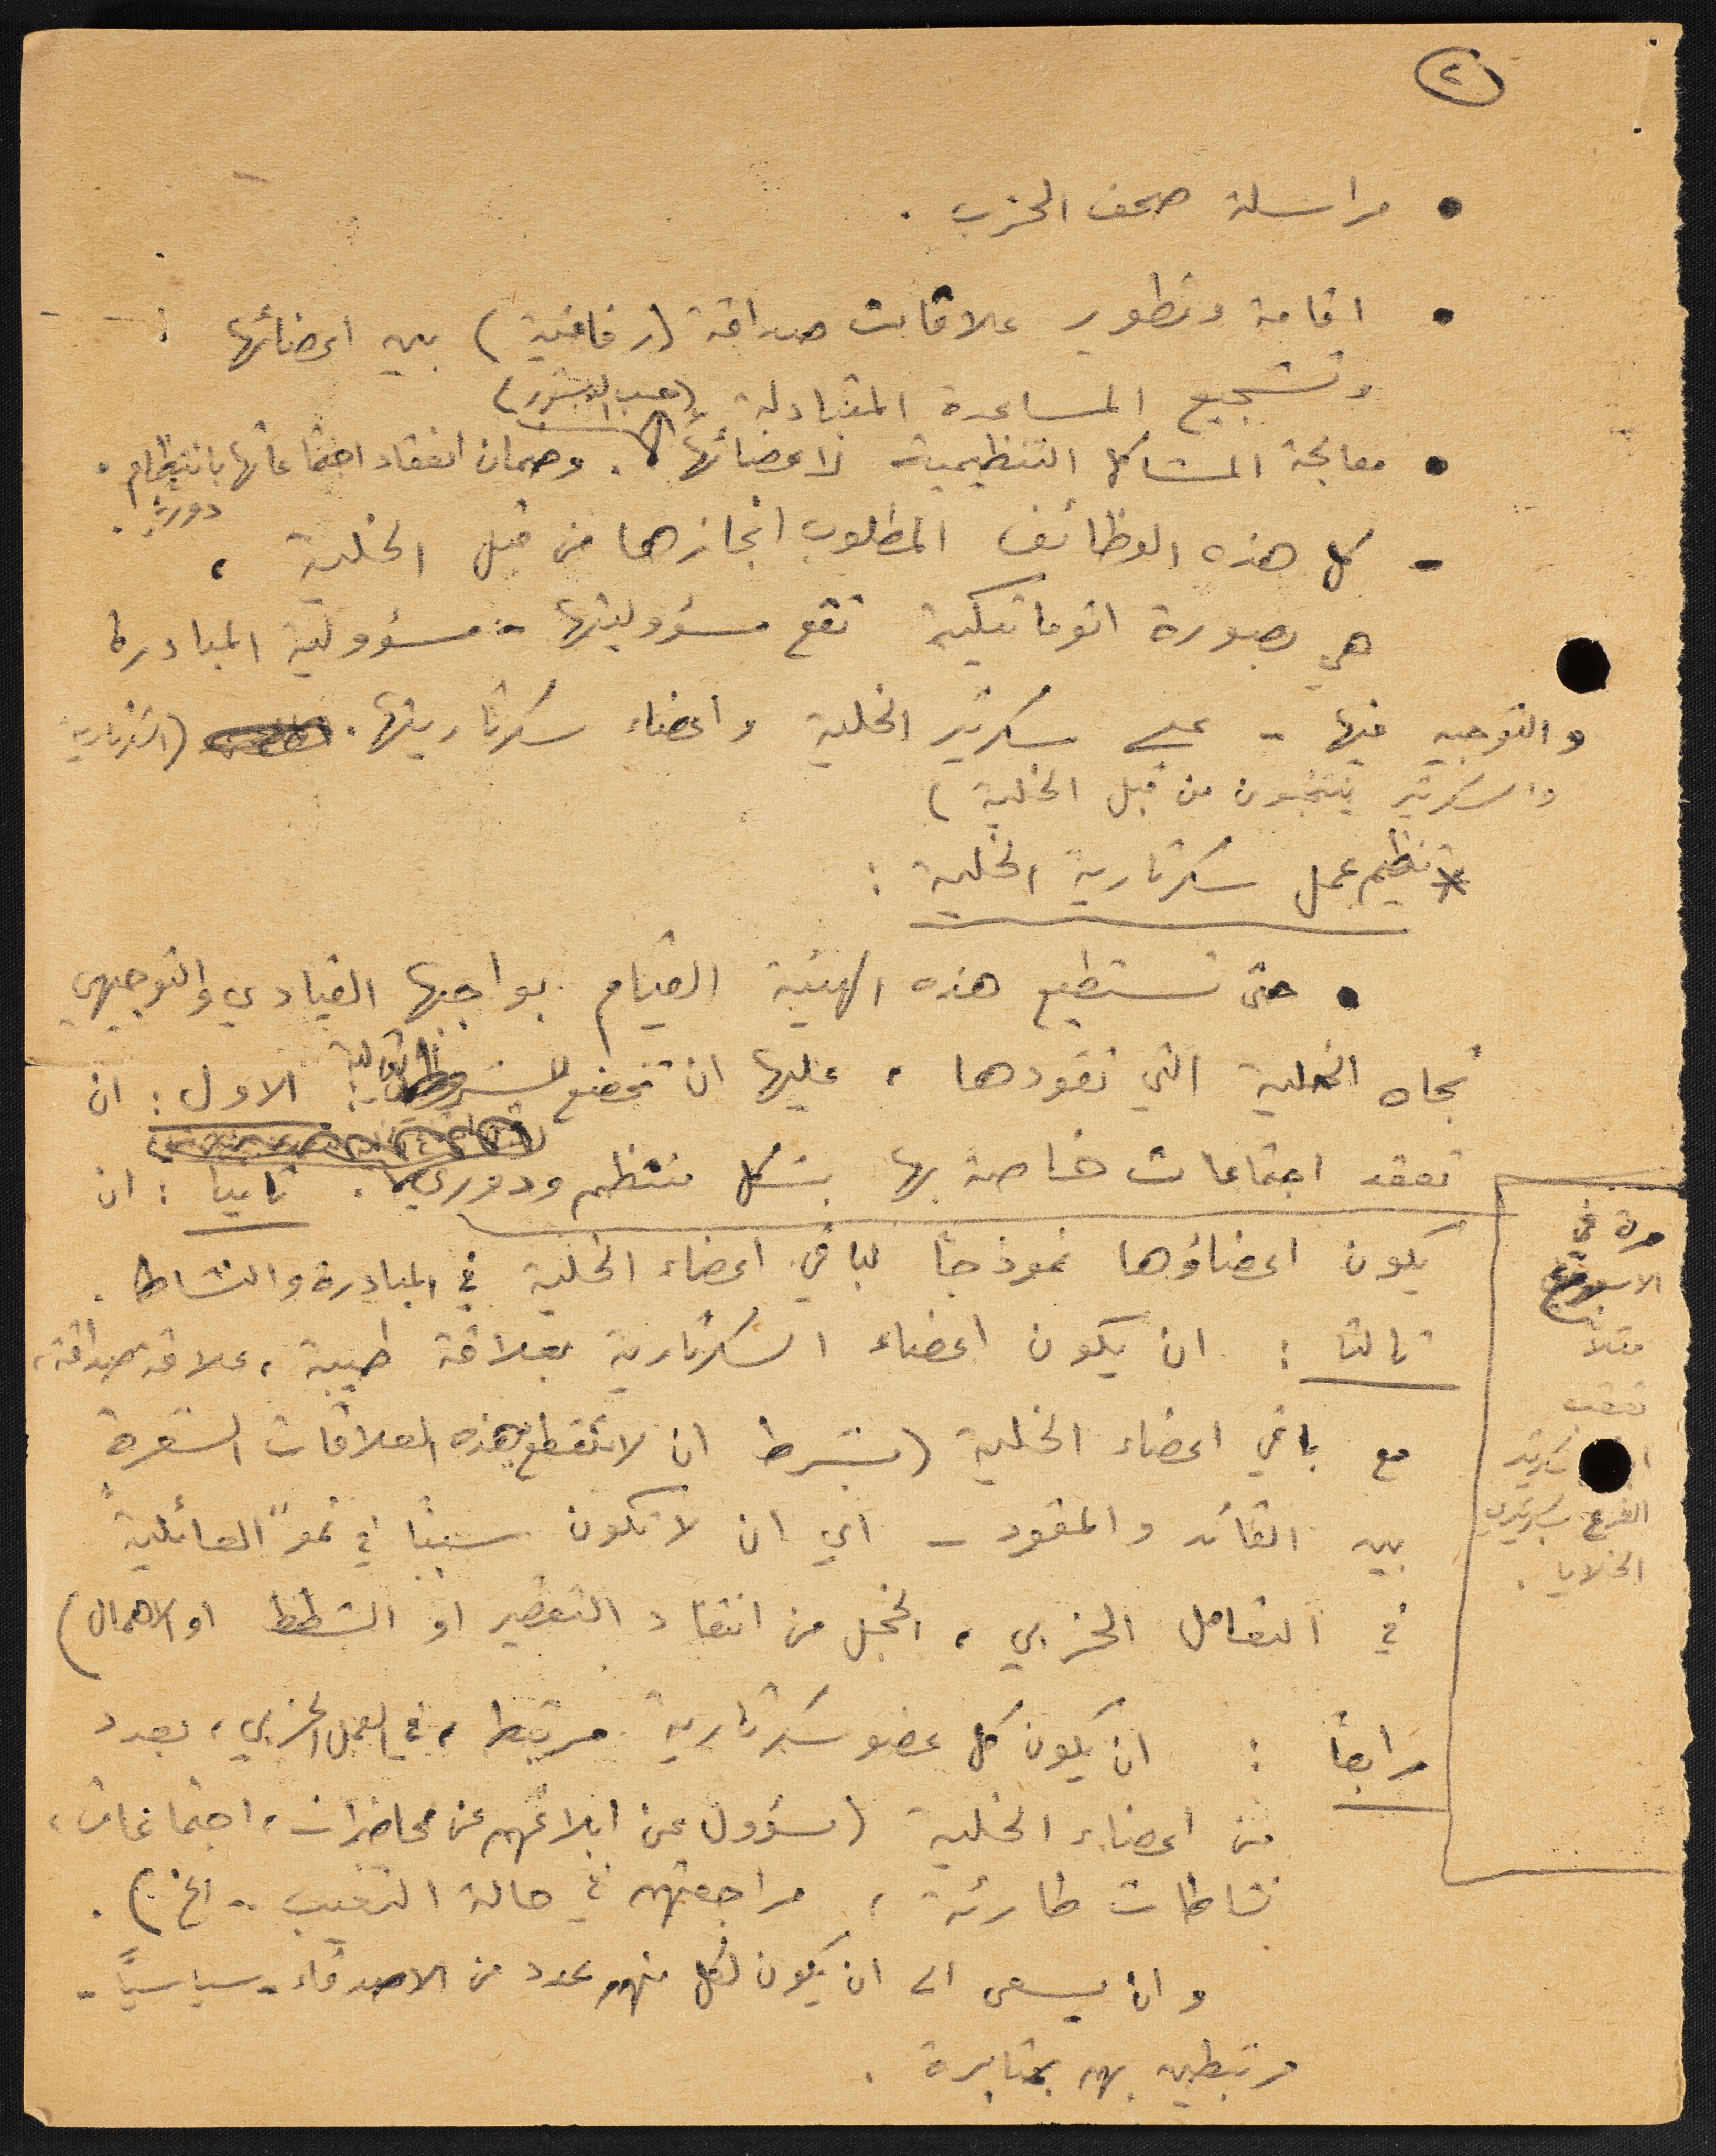 ٢
• مراسلة صحف الحزب .
• اقامة وتطوير علاقات صداقة (رفاقية) بين اعضائها :
وتشجيع المساعدة المتبادلة (حسب الدستور)
• معالجة المشاكل التنظيمية لاعضائها . وضمان انعقاد اجتماعاتها بانتظام .
دورية .
- كل هذه الوظائف المطلوب انجازها من قبل الخلية ،
هي بصورة اتوماتيكية تقع مسؤوليتها - مسؤولية المبادرة
والتوجيه فيها - على سكرتير الخلية واعضاء سكرتاريتها . (السكرتارية
والسكرتير ينتخبون من قبل الخلية )
* تنظيم عمل سكرتارية الخلية :
• حتى تستطيع هذه الهيئة القيام بواجبها القيادي والتوجيهي
تجاه الخلية التي تقودها ، عليها ان تخضع للشروط التالية : الاول : ان
تعقد اجتماعات خاصة بها بشكل منتظم ودوري . ثانيا : ان
يكون اعضاؤها نموذجاً لباقي اعضاء الخلية في المبادرة والنشاط .
ثالثا : ان يكون اعضاء السكرتارية بعلاقة طيبة ، علاقة صداقة ،
مع باقي اعضاء الخلية (بشرط ان لا تقطع هذه العلاقات الشعرة
بين القائد والمقود - اي ان لا تكون سبباً في نموّ "العائلية"
في التعامل الحزبي ، الخجل من انتقاد التقصير او الشطط او الاهمال)
رابعاً : ان يكون كل عضو سكرتارية مرتبط ، في العمل الحزبي ، بعدد
من اعضاء الخلية (مسؤول عن ابلاغهم عن محاضرات ، اجتماعات ،
نشاطات طارئة ، مراجعتهم في حالة التغيب .. الخ ) .
وان يسعى الى ان يكون لكل منهم عدد من الاصدقاء - سياسياً -
مرتبطين بهم بمثابرة .
مرة في
الاسبوع
مثلا
سكرتير
الفرع بسكرتيري
الخلايا .